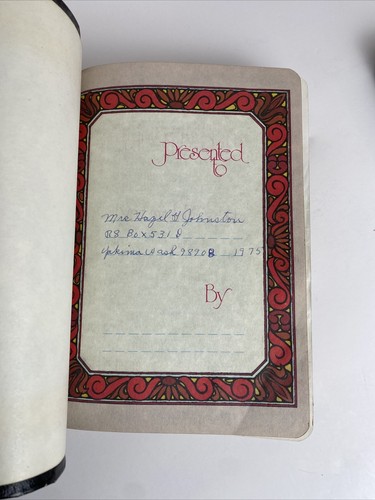 Presented
to
Mrs Hazil H Johnston
R8 Box 531 D
Yakima Wash 98908 1975
By